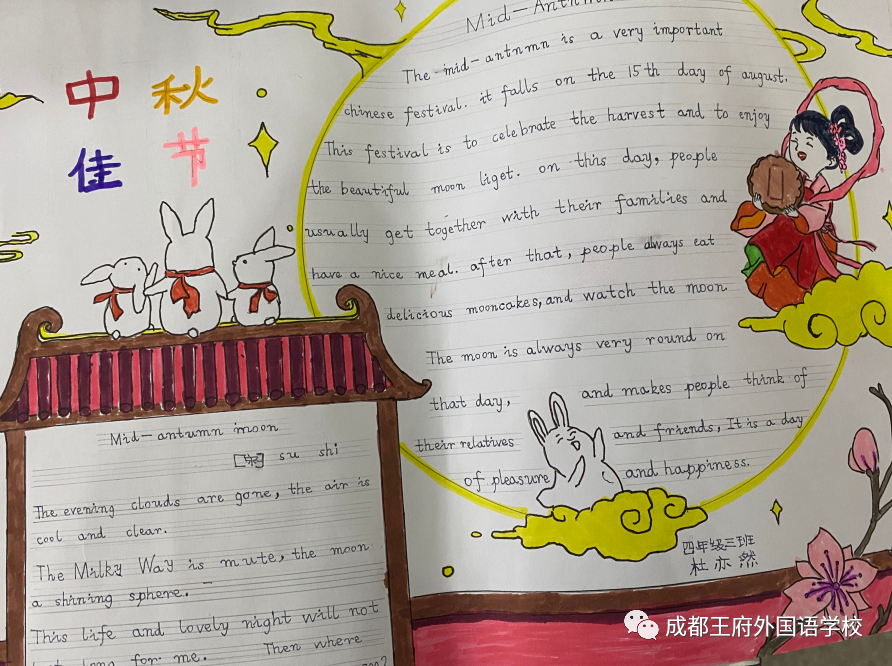 中秋
佳节
Mid-Antumn
The mid-antnmn is a very important
chinese festival. it falls on the 15th day of august.
This festival is to celebrate the harvest and to enjoy
the beautiful moon liget. on this day, people
usually get together with their families and
have a nice meal. after that, people always eat
delicious mooncakes, and watch the moon
The moon is always very round on
that day, and makes people think of
their relatives and friends, It is a day
of pleasure and happiness.
四年级三班
杜亦然
Mid-antumn moon
[宋] su shi
The evening clouds are gone, the air is
cool and clear.
The Milky Way is mute, the moon
a shining sphere.
This life and lovely night will not
long for me. Then where
成都王府外国语学校